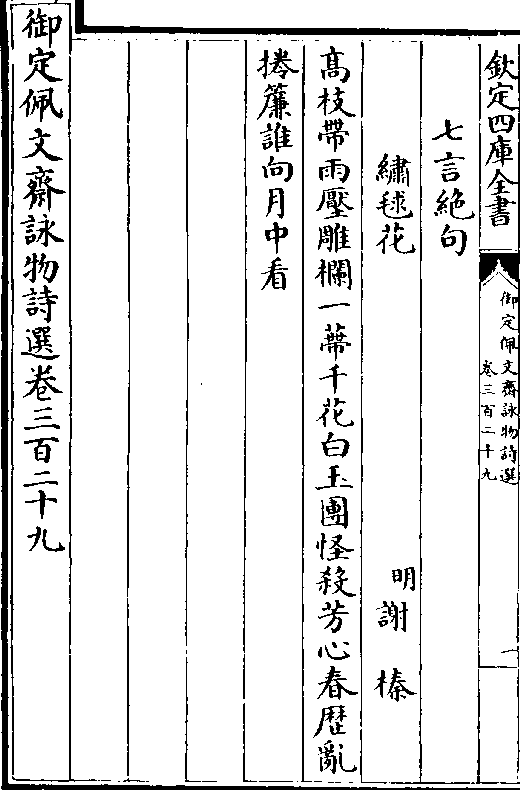 欽定四庫全書
御定佩文齋詠物詩選
卷三百二十九
一
七言絶句
繡毬花
明謝榛
高枝帶雨壓雕欄一蔕千花白玉團怪殺芳心春歴亂
捲簾誰向月中看
御定佩文齋詠物詩選卷三百二十九